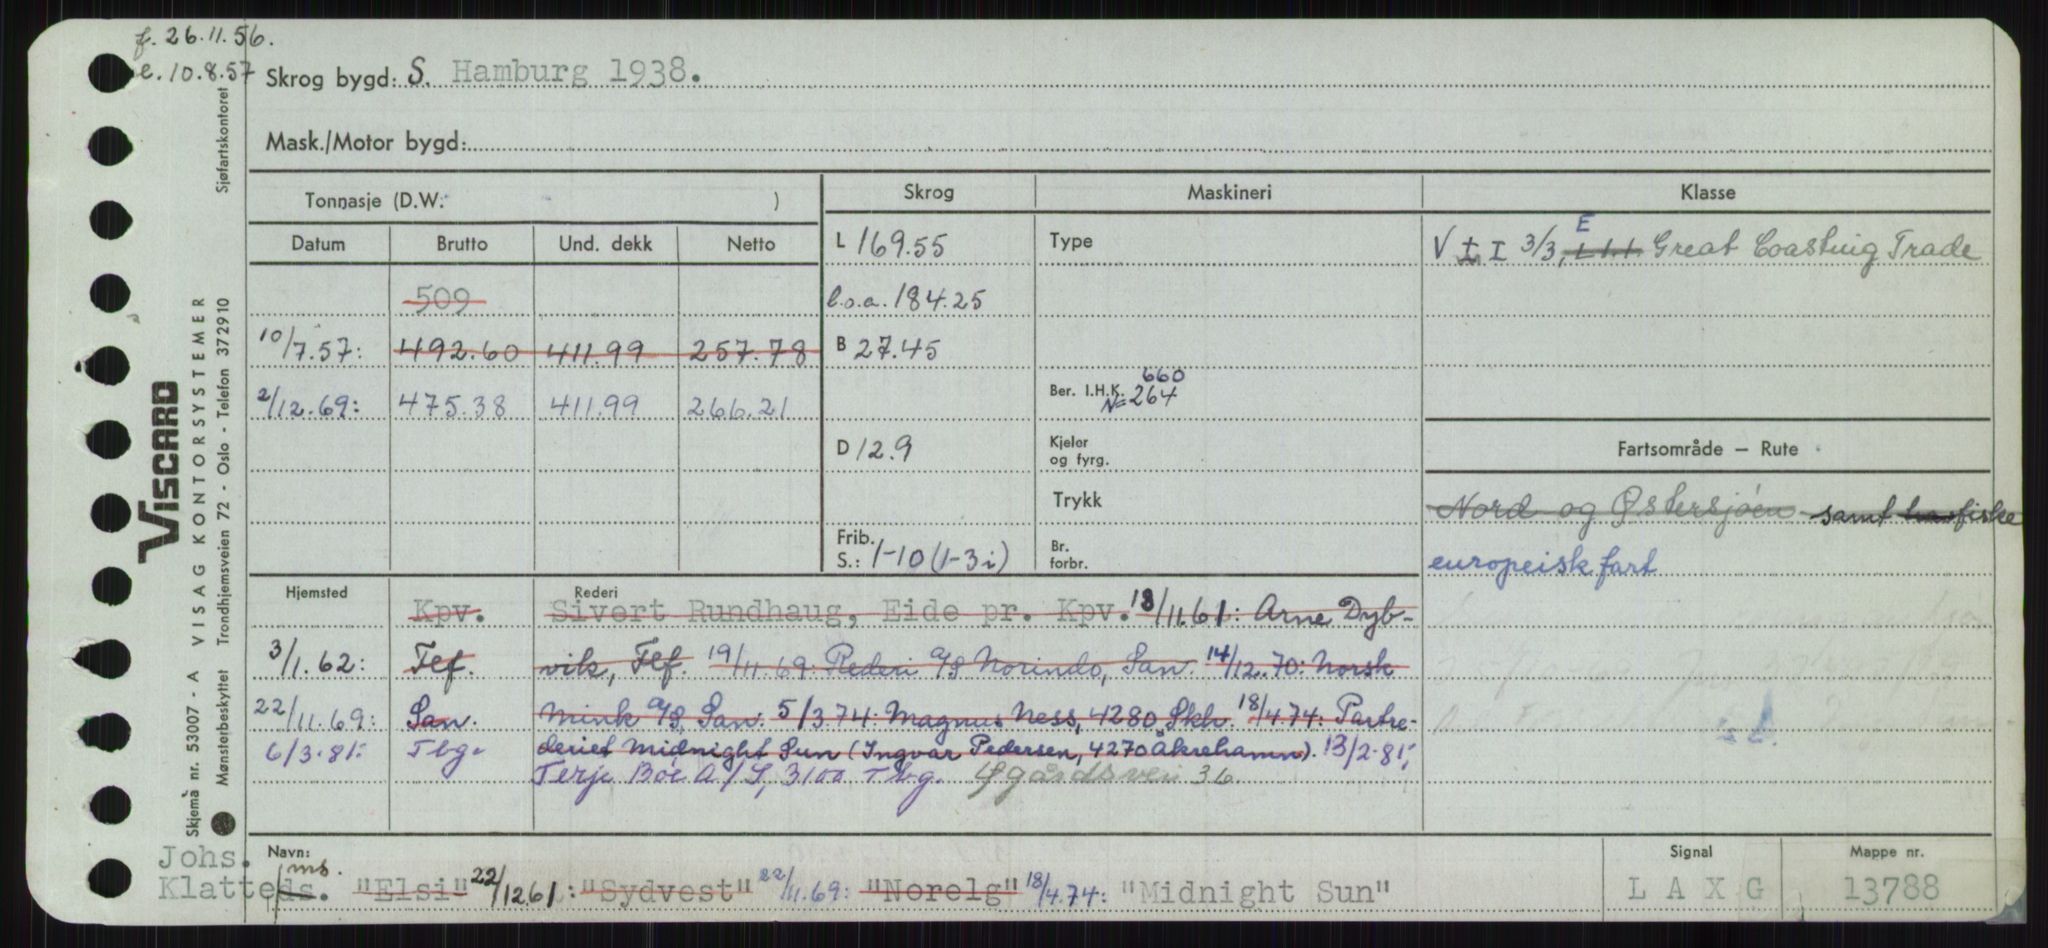 f. 26.11.56.
e. 10.8.57
Skrog bygd: S. Hamburg 1938.
Mask./Motor bygd:
Tonnasje (D.W. )
Skrog
Maskineri
Klasse
Datum Brutto Und. dekk Netto
L 169.55
Type
V ± I 3/3, E Great Coasting Trade
509
l.o.a. 184.25
10/7.57: 492.60 411.99 257.78
B 27.45
2/12.69: 475.38 411.99 266.21
Ber. I.H.K. 660
N= 264
D 12.9
Kjeler
og fyrg.
Fartsområde — Rute
Trykk
Nord og Østersjøen samt fiske
Frib.
S.: 1-10 (1-3i)
Br.
forbr.
europeisk fart
Hjemsted
Rederi
Kpv. Sivert Rundhaug, Eide pr. Kpv. 18/11.61: Arne Dyb-
3/1.62: Flf. vik, Flf. 19/11.69: Rederi a/s Norindo, San. 14/12.70: Norsk
22/11.69: San. Mink a/s, San. 5/3.74: Magnus Ness, 4280 Skh. 18/4.74: Partre-
6/3.81: Tbg. deriet Midnight Sun (Ingvar Pedersen, 4270 Åkrehamn). 13/2.81:
Terje Böe A/S, 3100 Tbg. Øgårdsvei 36
Navn:
Johs.
Klatte
ms.
ds. "Elsi" 22/1261: "Sydvest" 22/11.69: "Norelg" 18/4.74: "Midnight Sun"
Signal
L A X G
Mappe nr.
13788
VISCARD
VISAG KONTORSYSTEMER
Skjema nr. 53007 - A
Mønsterbeskyttet Trondhjemsveien 72 - Oslo - Telefon 372910
Sjøfartskontoret